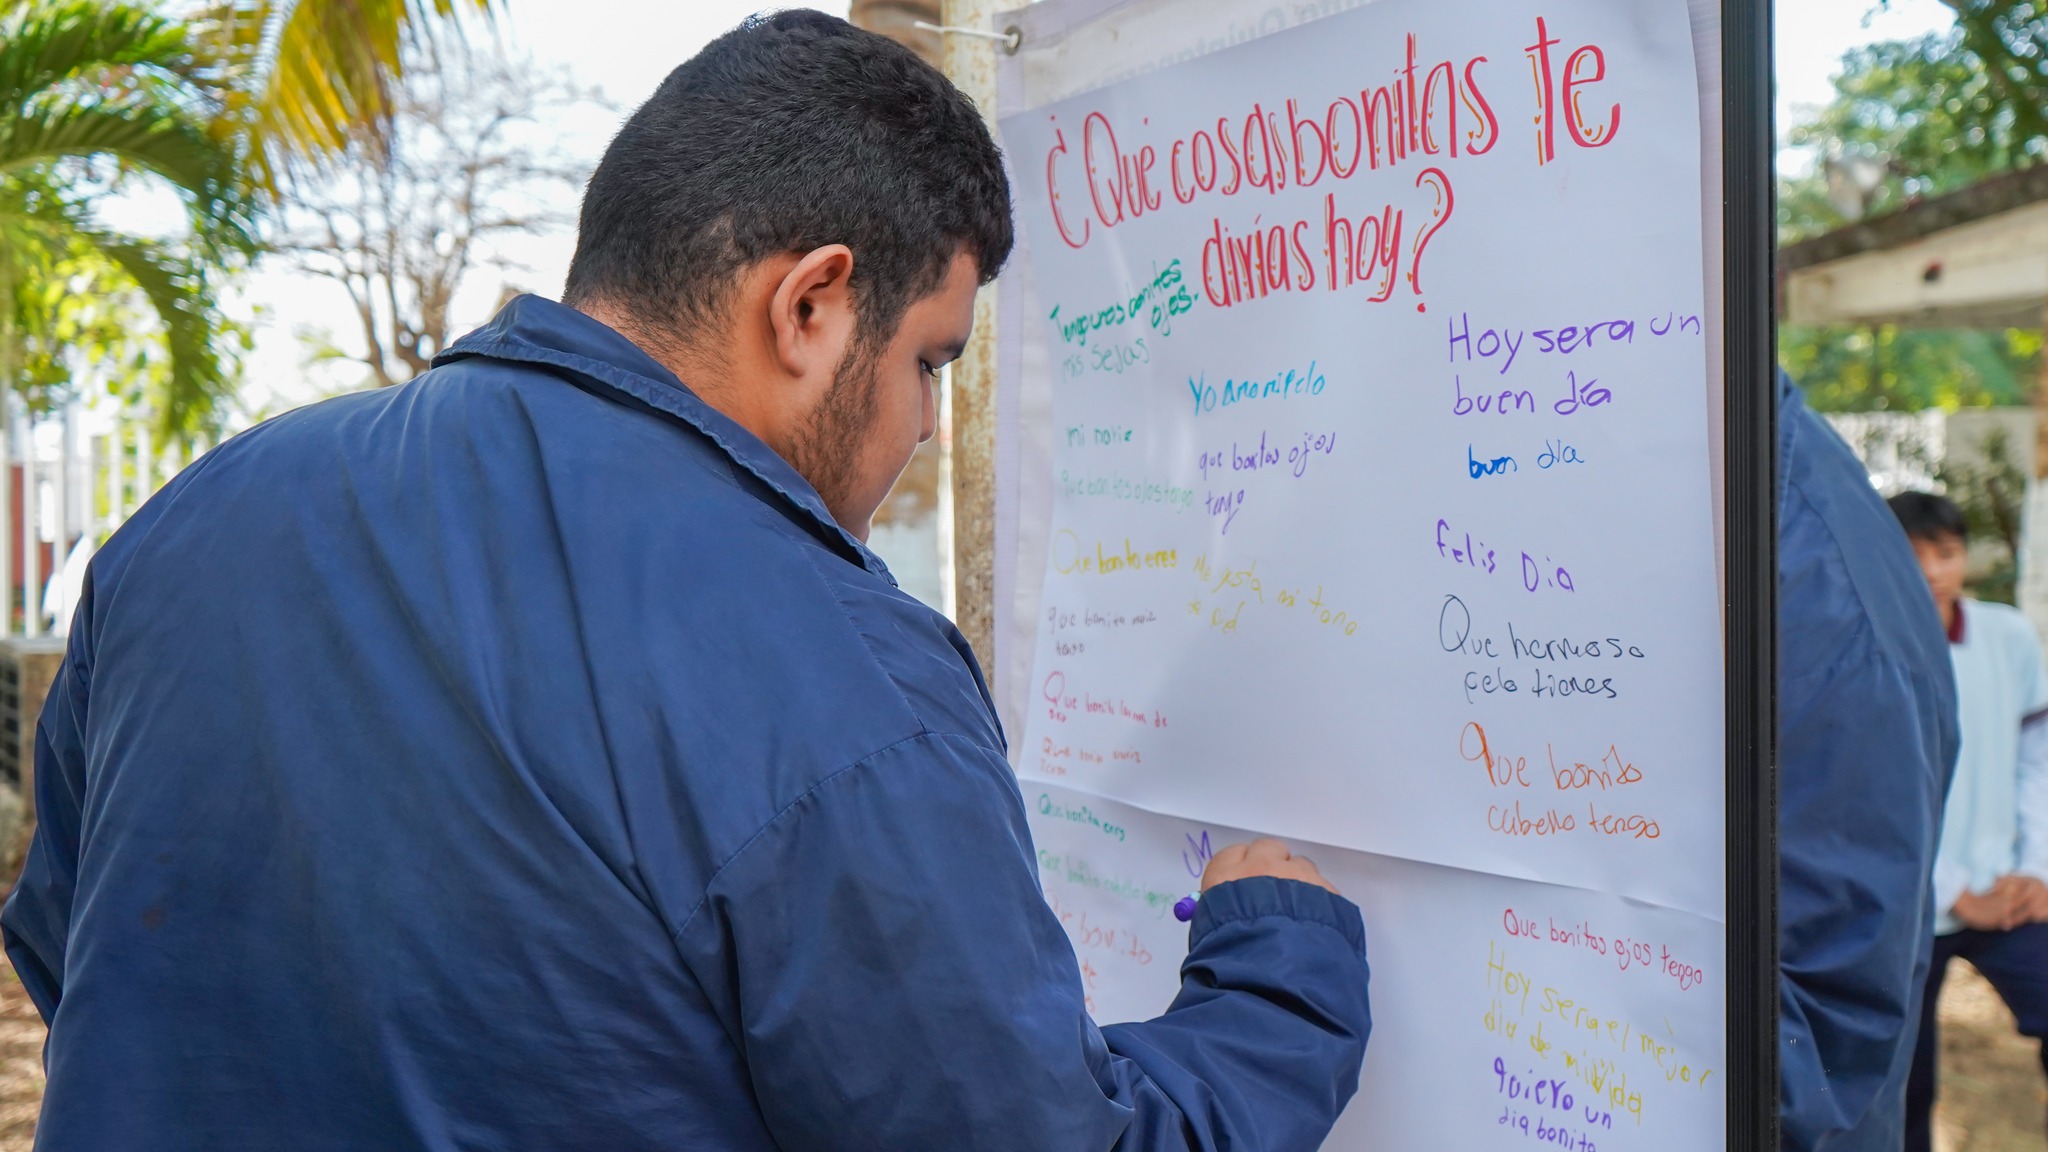 ¿Que cosas bonitas te
dirías hoy?
Tengo unos bonitos
ojos.
mis sejas
Yo amo mi pelo
mi nariz
que bonitos ojos
tengo
que bonitos ojos tengo
Que bonito eres
Me gusta mi tono
de piel
que bonita nariz
tengo
Que bonita
Que bonita nariz
tengo
Que bonita eres
Que bonito cabello tengo
bonito
Hoy sera un
buen día
buen día
felis Dia
Que hermoso
pelo tienes
que bonito
cabello tengo
Que bonitos ojos tengo
Hoy sera el mejor
dia de mi vida
quiero un
dia bonito